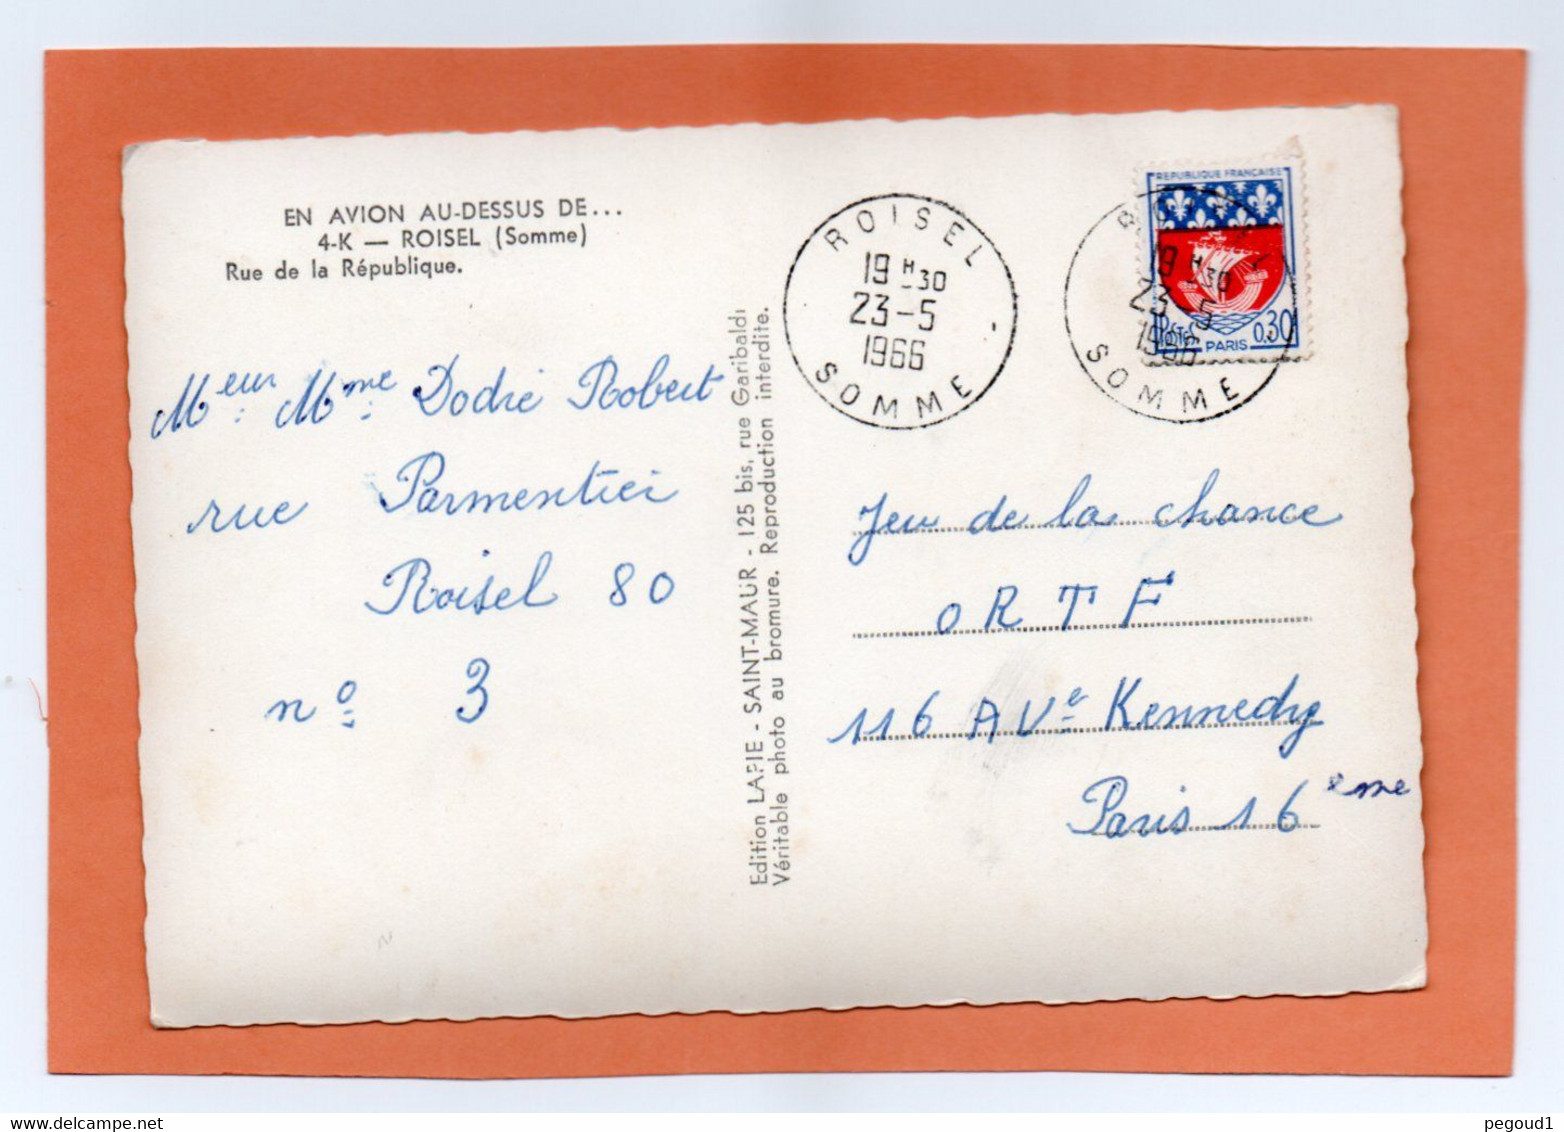 EN AVION AU-DESSUS DE...
4-K — ROISEL (Somme)
Rue de la République.
Meur Mme Dodré Robert
rue Parmentier
Roisel 80
nº 3
Edition LAPIE - SAINT-MAUR - 125 bis, rue Garibaldi
Véritable photo au bromure. Reproduction interdite.
ROISEL
19 H 30
23-5
1966
SOMME
REPUBLIQUE FRANÇAISE
Postes
0,30
PARIS
19 H 30
23-5
1966
SOMME
Jeu de la chance
ORTF
116 AVe Kennedy
Paris 16 eme
pegoud1